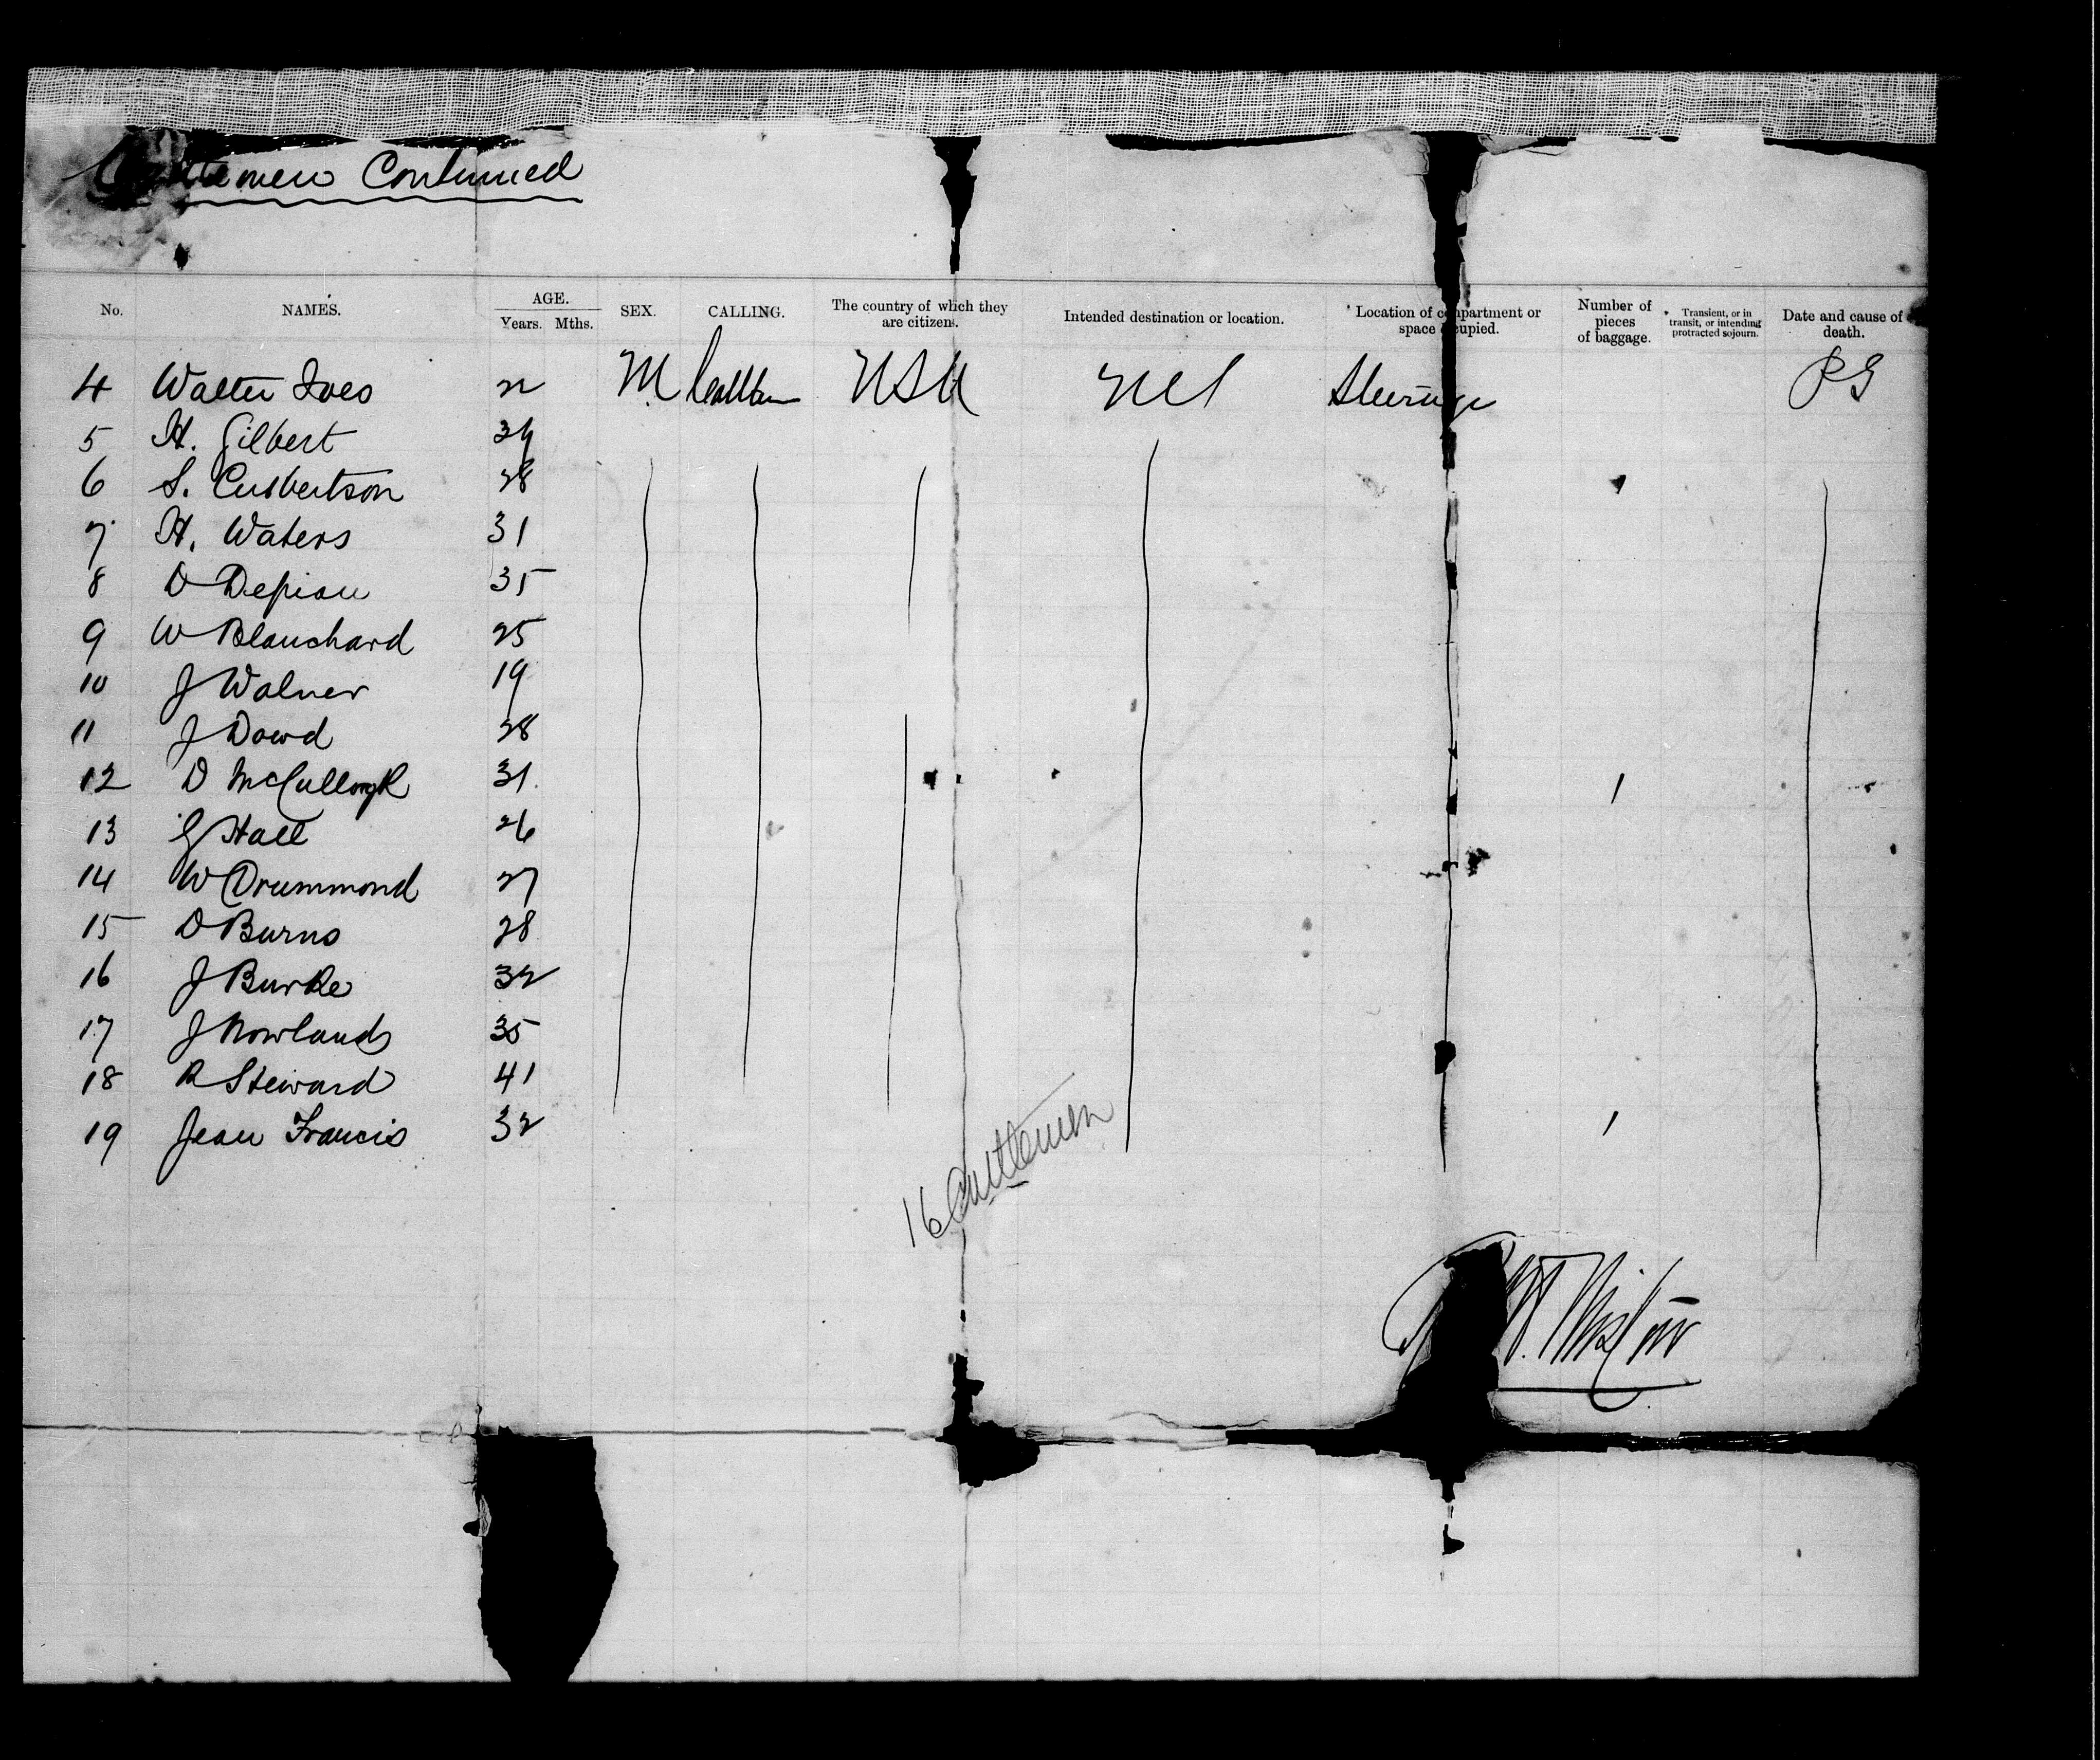 Cattlemen Continued
No. NAMES. AGE. Years. Mths. SEX. CALLING. The country of which they are citizens. Intended destination or location. Location of compartment or space occupied. Number of pieces of baggage. Transient, or in transit, or intending protracted sojourn. Date and cause of death.
4 Walter Ives 22 M Cattlem USA Steerage
5 H. Gilbert
6 S. Cusbertson 28
7 H. Waters 31
8 D 35
9 W Blanchard 25
10 J Walner 19
11 J Dowd 28
12 D McCullough 31 1
13 G Hall 26
14 W Drummond 27
15 D Burns 28
16 J Burke 32
17 J Nowlands 35
18 R Steward 41
19 Jean Francis 32 1
16 Cattlemen